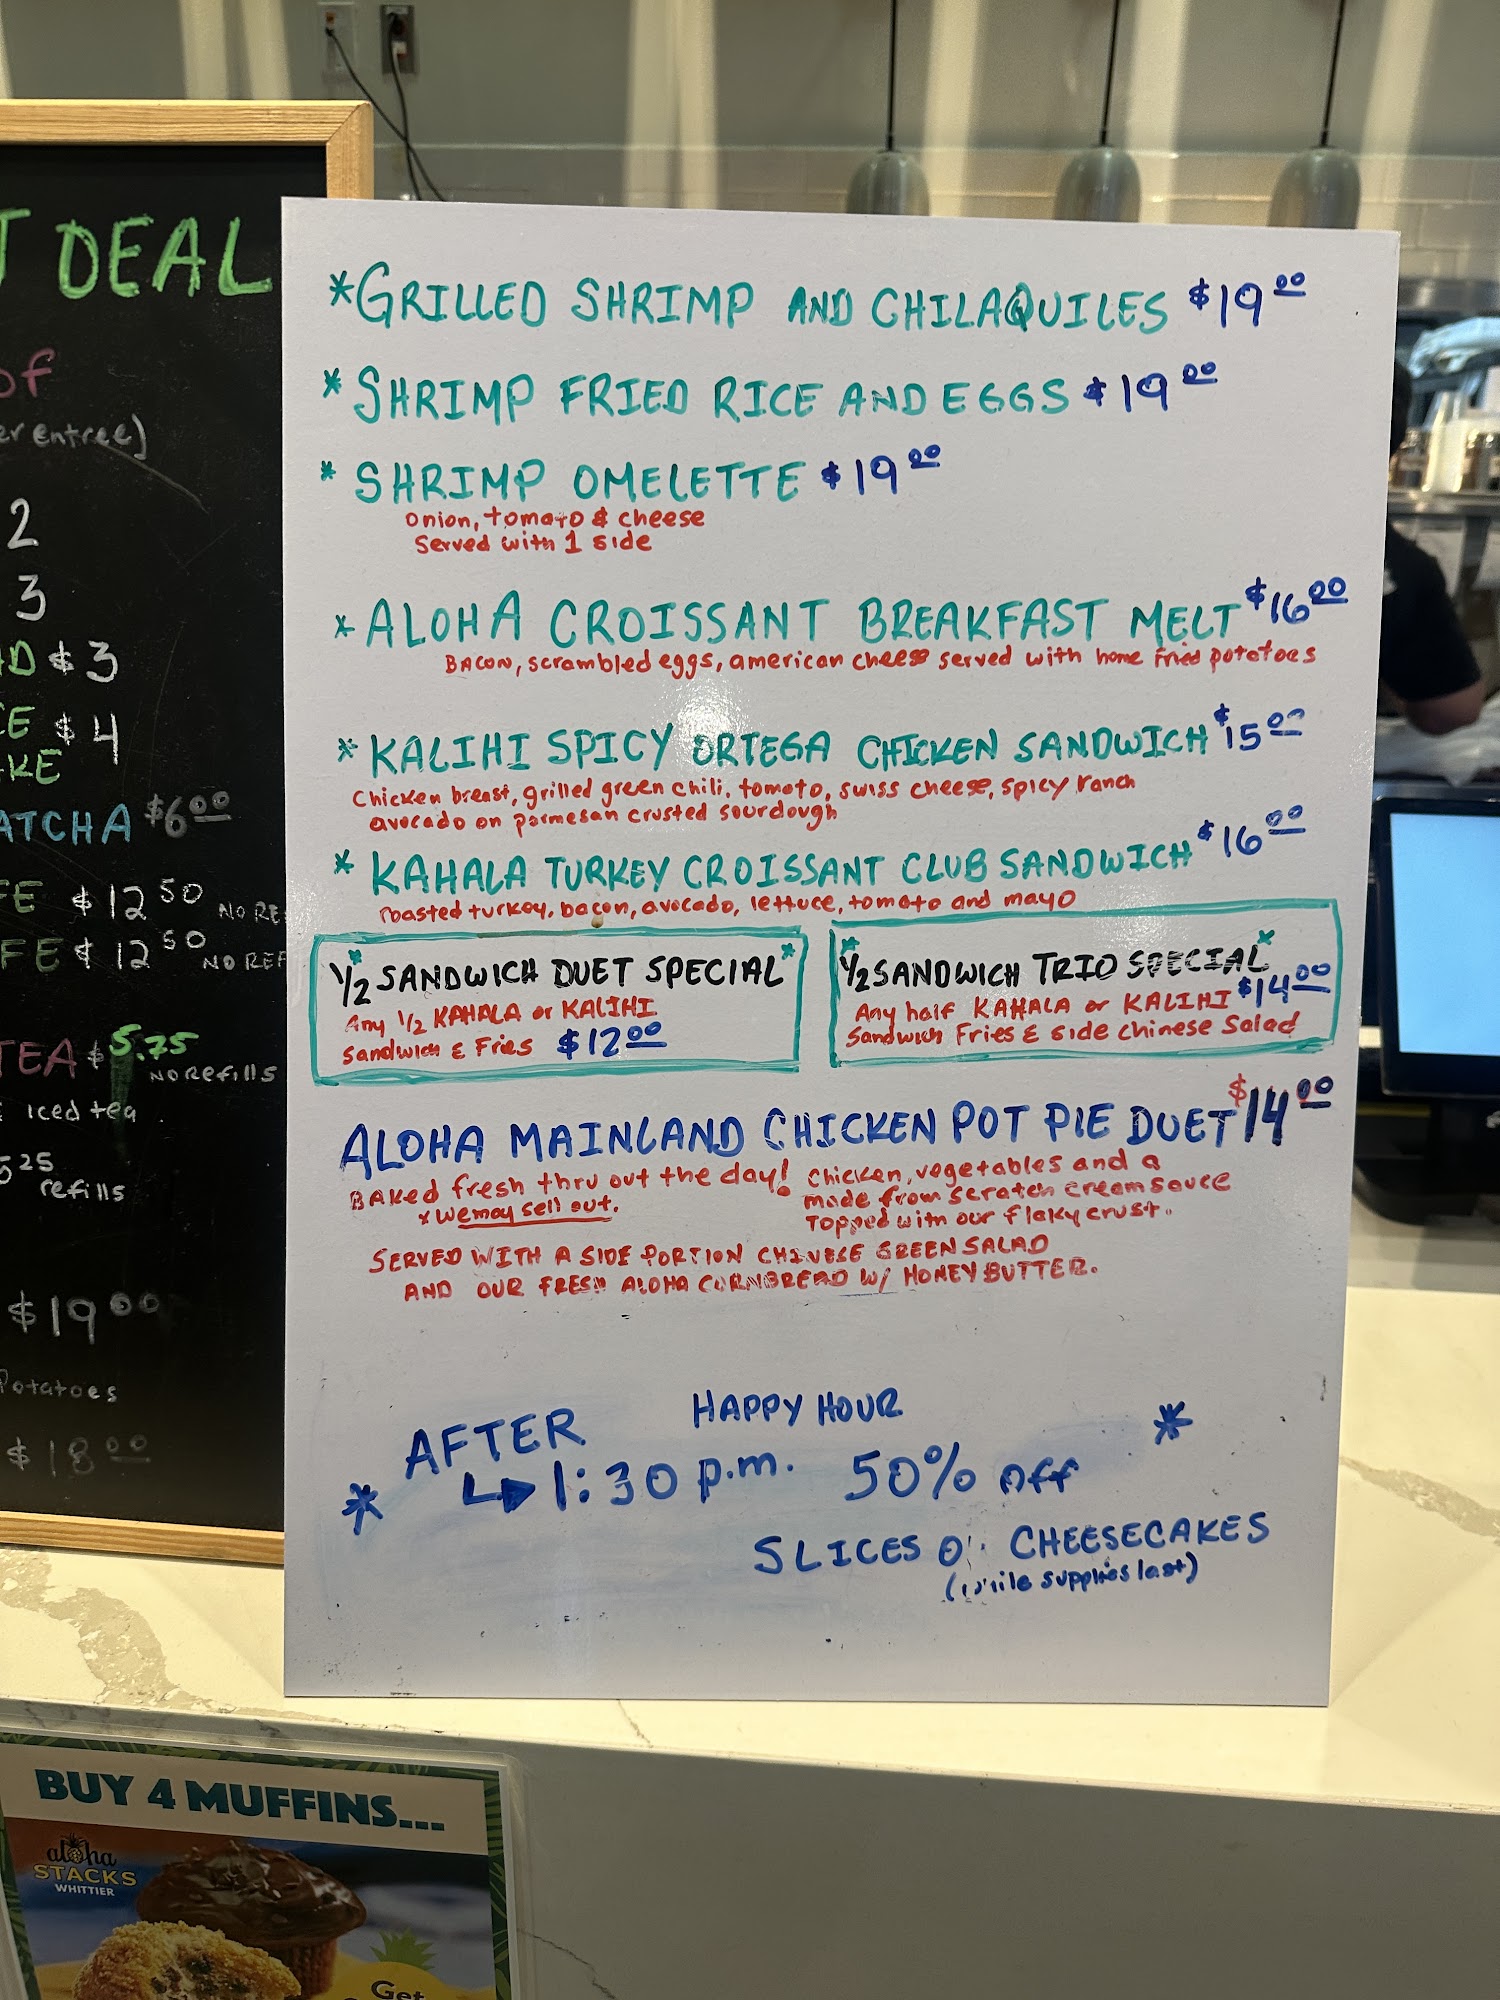 DEAL
of
er entree)
2
3
D $3
CE $4
KE
ATCHA $6.00
FE $12.50 NO RE
FE $12.50 NO REF
TEA $5.75
NO Refills
iced tea
5.25
refills
$19.00
Potatoes
$18.00
*GRILLED SHRIMP AND CHILAQUILES $19.00
*SHRIMP FRIED RICE AND EGGS $19.00
*SHRIMP OMELETTE $19.00
onion, tomato & cheese
Served with 1 side
*ALOHA CROISSANT BREAKFAST MELT $16.00
BACON, scrambled eggs, american cheese served with home fried potatoes
*KALIHI SPICY ORTEGA CHICKEN SANDWICH $15.00
Chicken breast, grilled green chili, tomato, swiss cheese, spicy ranch
avocado on parmesan crusted sourdough
*KAHALA TURKEY CROISSANT CLUB SANDWICH $16.00
roasted turkey, bacon, avocado, lettuce, tomato and mayo
*1/2 SANDWICH DUET SPECIAL*
Any 1/2 KAHALA or KALIHI
Sandwich & Fries $12.00
*1/2 SANDWICH TRIO SPECIAL*
Any half KAHALA or KALIHI $14.00
Sandwich Fries & side Chinese Salad
ALOHA MAINLAND CHICKEN POT PIE DUET $14.00
BAKed fresh thru out the day!
* We may sell out.
Chicken, vegetables and a
made from scratch cream sauce
Topped with our flaky crust.
SERVED WITH A SIDE PORTION CHINESE GREEN SALAD
AND OUR FRESH ALOHA CORNBREAD W/ HONEY BUTTER.
HAPPY HOUR
* AFTER
1:30 p.m. 50% off *
SLICES OF CHEESECAKES
(while supplies last)
BUY 4 MUFFINS...
aloha
STACKS
WHITTIER
Get